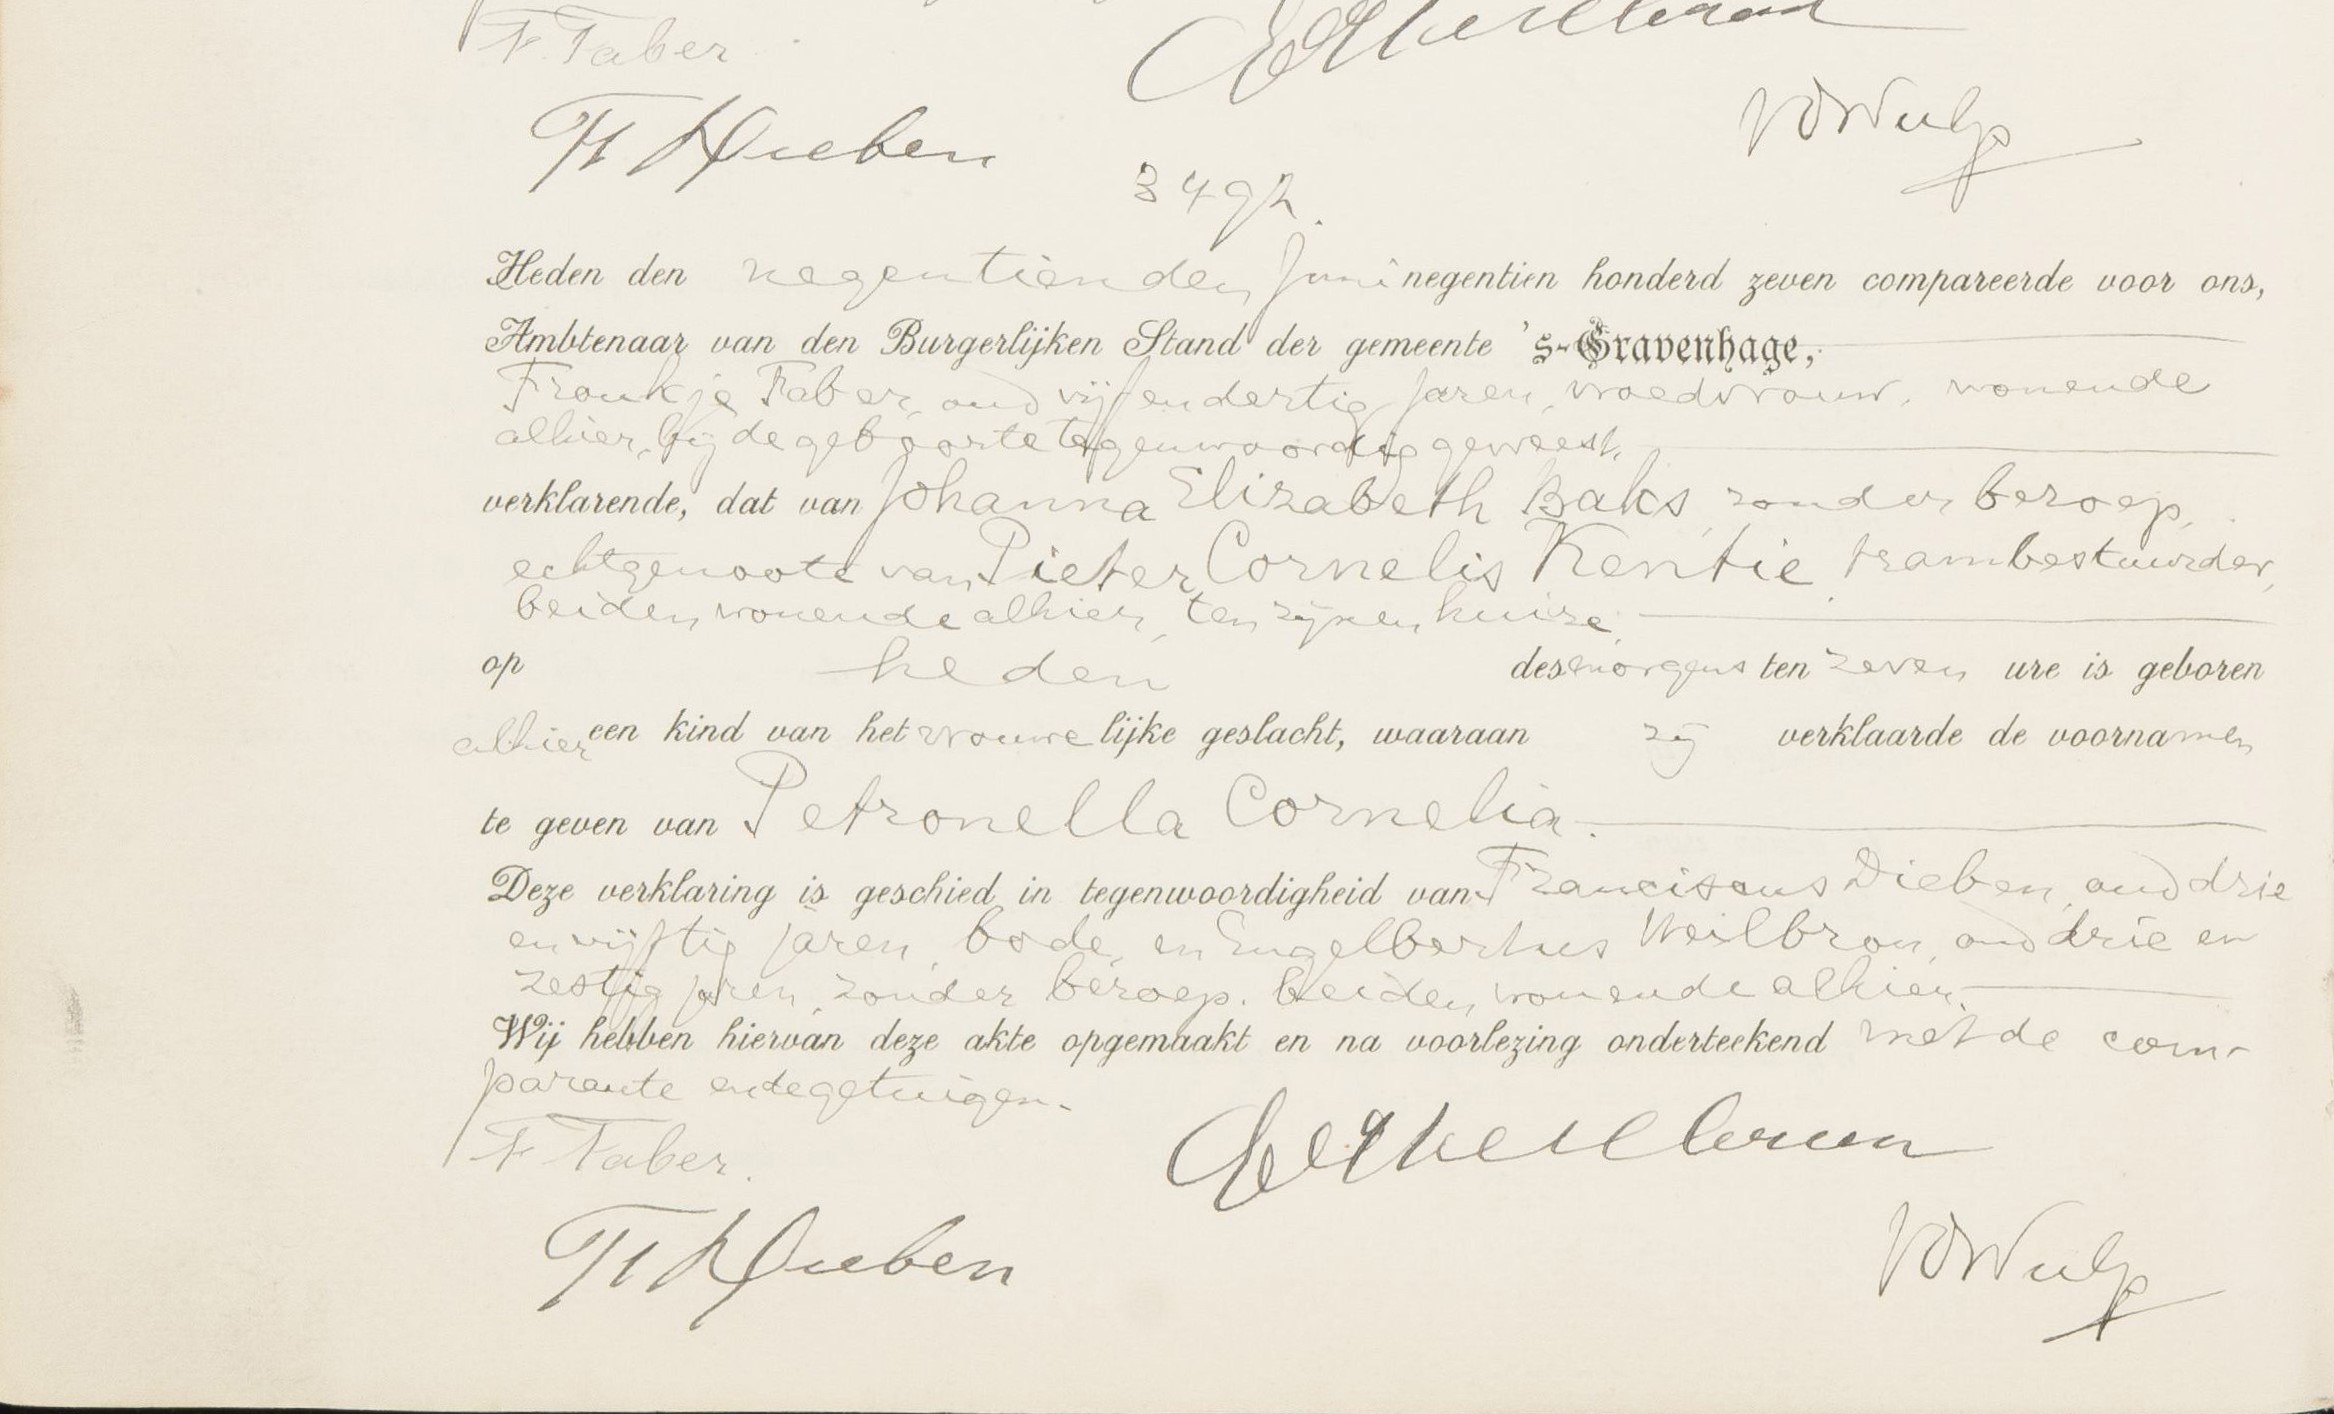 F. Faber.
Fr Dieben
VDWulp
3492.
Heden den negentienden Juni negentien honderd zeven compareerde voor ons,
Ambtenaar van den Burgerlijken Stand der gemeente 's-Gravenhage,
Froukje Faber, oud vijfendertig jaren, vroedvrouw, wonende
alhier, bij de geboorte tegenwoordig geweest,
verklarende, dat van Johanna Elizabeth Baks, zonder beroep,
echtgenoote van Pieter Cornelis Kentie, trambestuurder,
beiden wonende alhier, ten zijnen huize,
op heden des morgens ten zeven ure is geboren
alhier een kind van het vrouwelijke geslacht, waaraan zij verklaarde de voornamen
te geven van Petronella Cornelia.
Deze verklaring is geschied in tegenwoordigheid van Franciscus Dieben, oud drie
en vijftig jaren, bode, en Engelbertus Weilbron, oud drie en
zestig jaren, zonder beroep, beiden wonende alhier.
Wij hebben hiervan deze akte opgemaakt en na voorlezing onderteekend met de com-
parante en de getuigen.
F Faber.
Fr Dieben
VDWulp